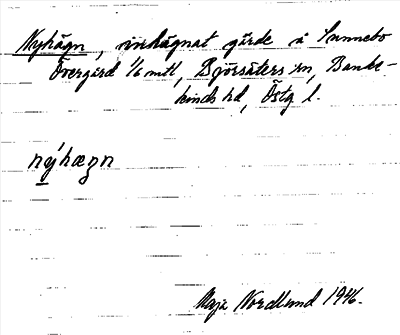 Nyhägn, inhägnat gärde å Sunnebo
Övergård 1/6 mtl, Björsäters sn, Bankekinds hd, Östg l.
nýhægn
Maja Nordlund 1946.